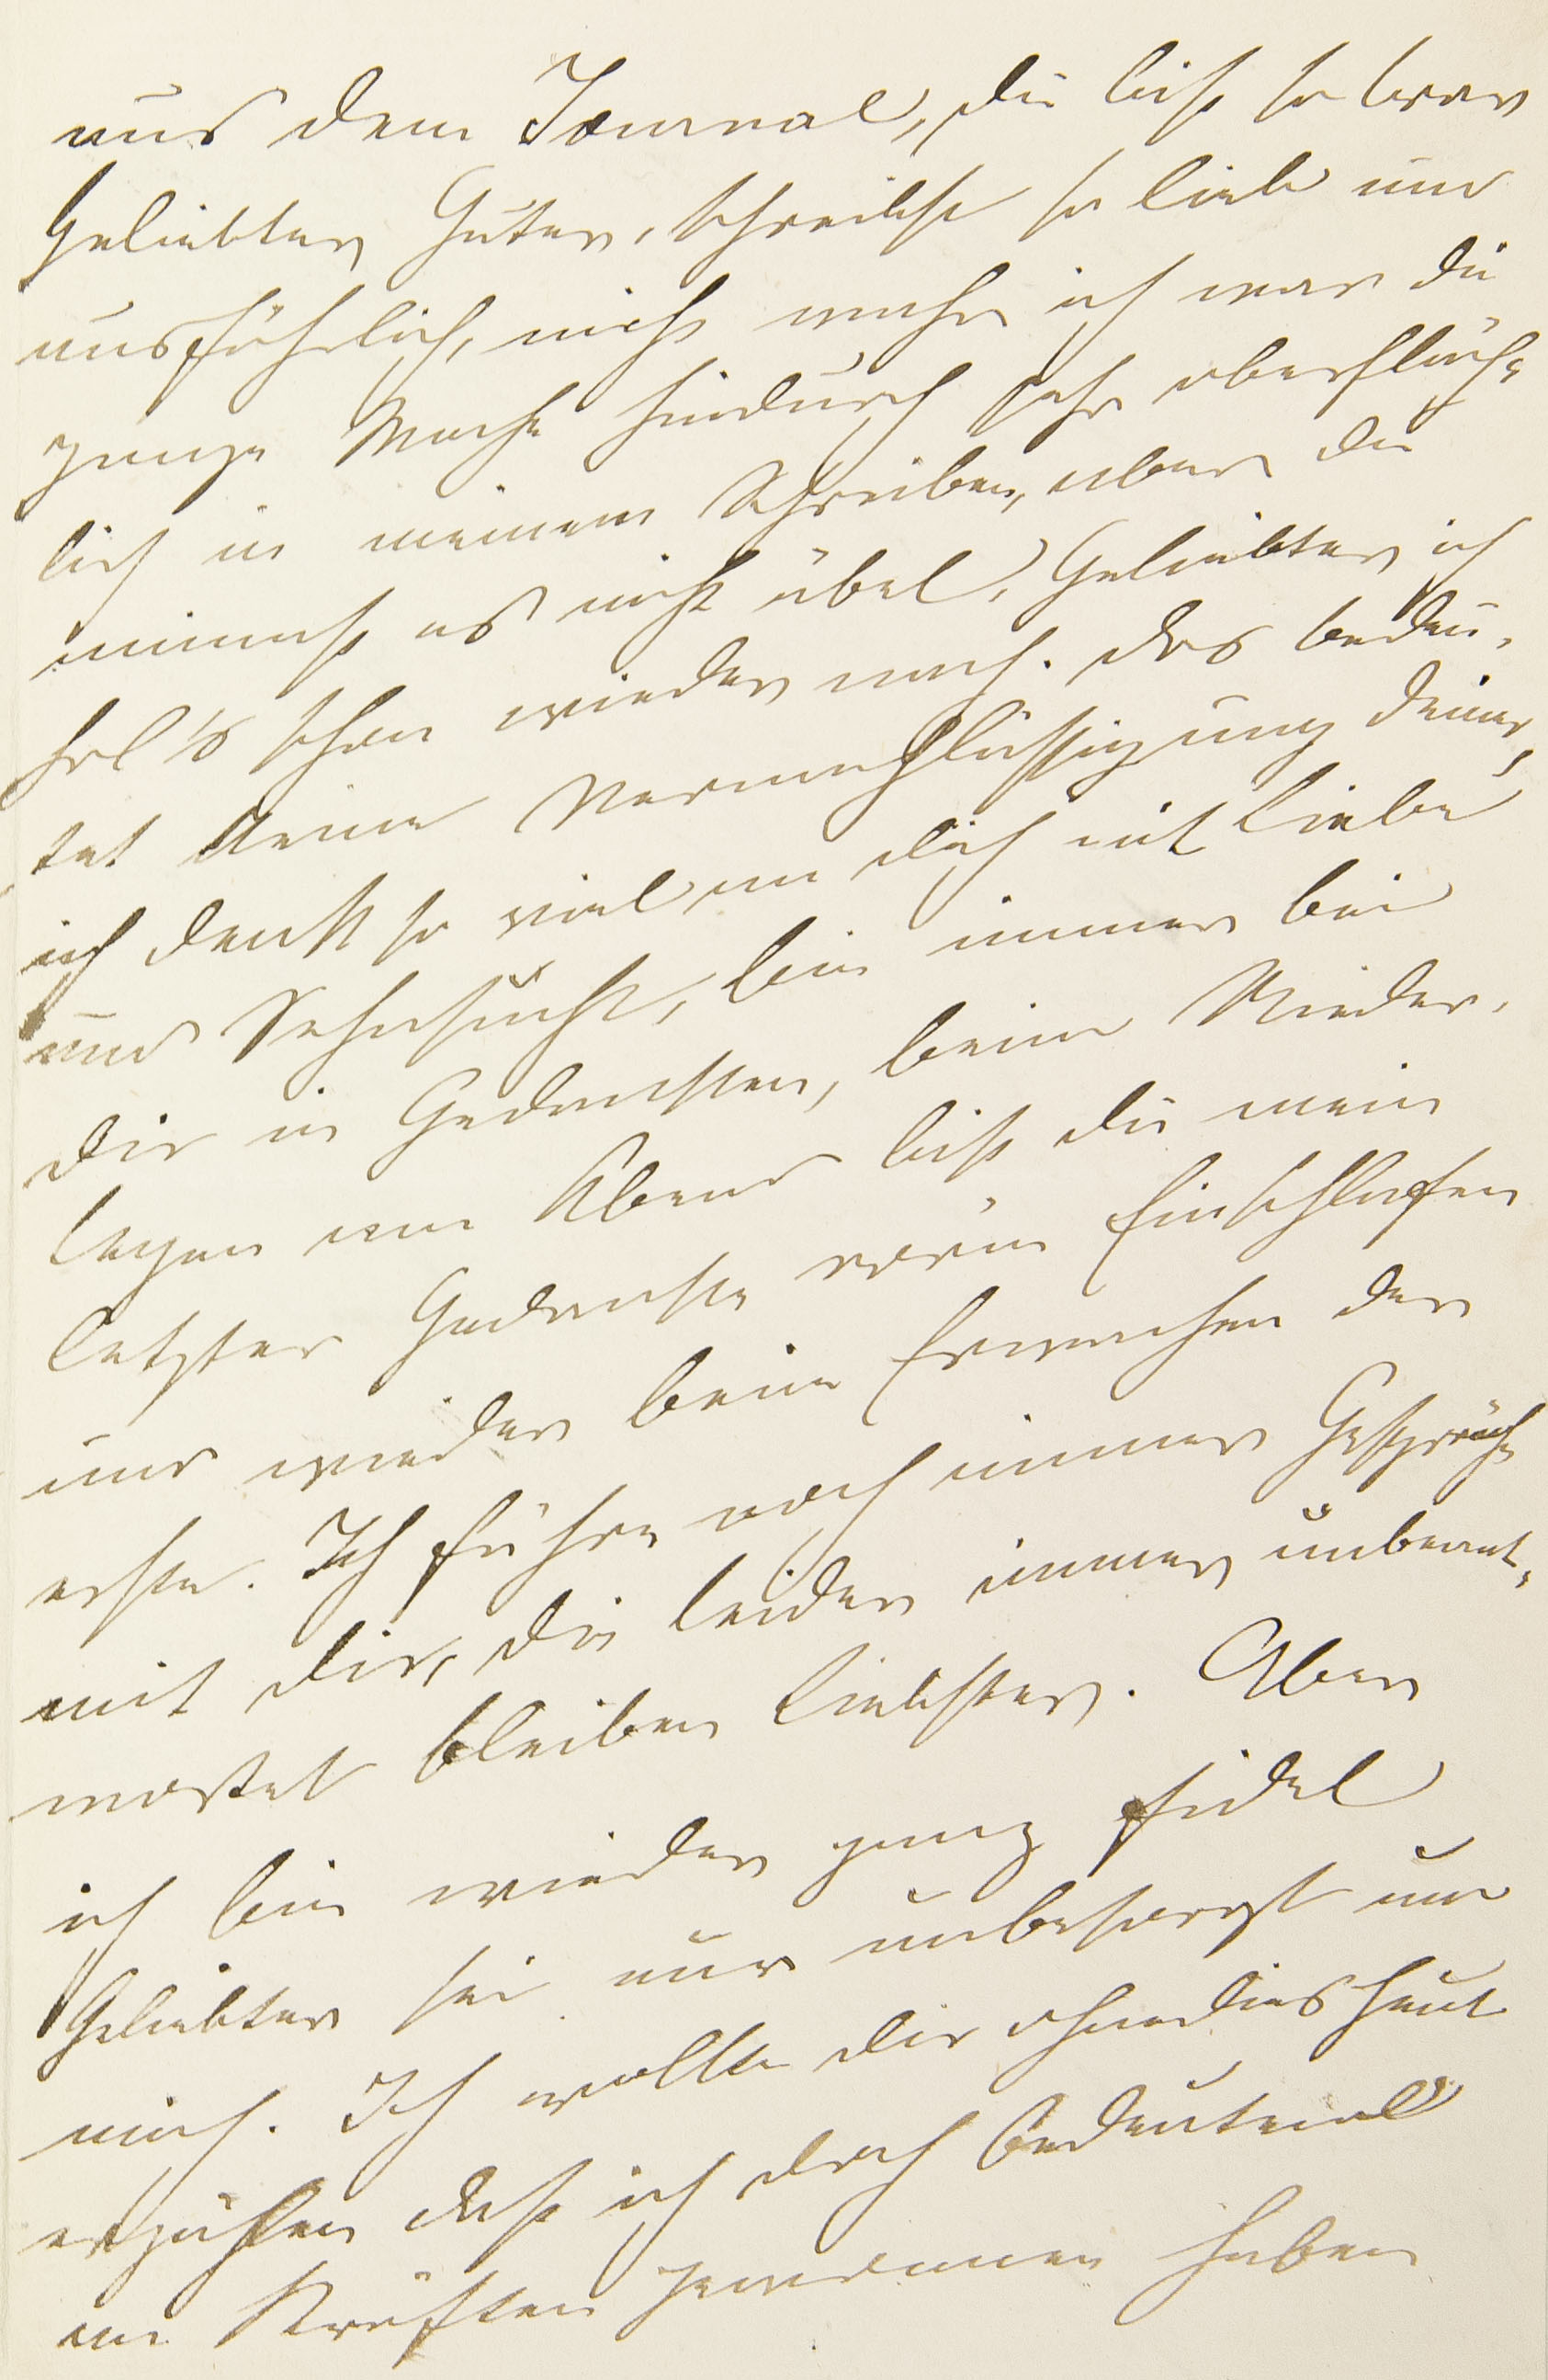 aus dem Journal, du bist so brav
Geliebter Guter, schreibst so lieb und
ausführlich, nicht wahr ich war die
ganze Woche hindurch sehr oberfläch-
lich in meinem Schreiben, aber du
nimmst es nicht übel, Geliebter ich
hol's schon wieder nach. Das bedeu-
tet keine Vernachlässigung deiner,
ich denke so viel an dich mit Liebe
und Sehnsucht, bin immer bei
dir in Gedanken, beim Nieder-
legen am Abend bist du mein
letzter Gedanke vorm Einschlafen
und wieder beim Erwachen der
erste. Ich führe auch immer Gespräche
mit dir, die leider immer unbeant-
wortet bleiben Liebster. Aber
ich bin wieder ganz fidel
Geliebter sei nur unbesorgt um
mich. Ich wollte dir ohnedies heut
erzählen daß ich doch bedeutend
an Kräften gewonnen haben